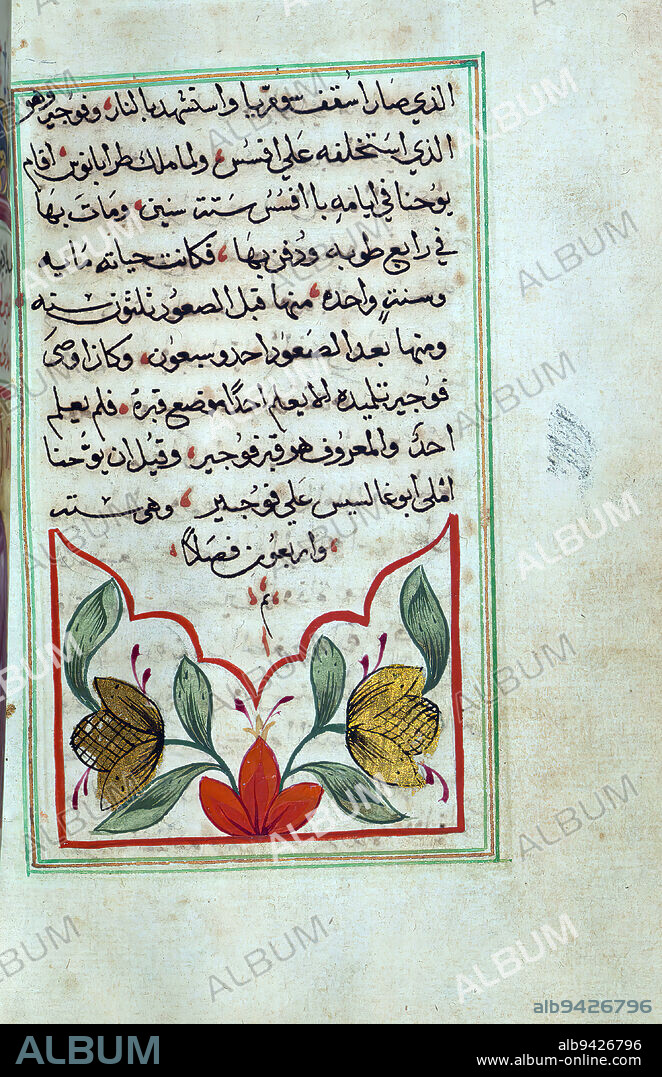 الذي صار اسقف سومريا واستشهد بالنار، وفوجير وهو
الذي استخلفه علي افسس، ولما ملك طرابانوس، اقام
يوحنا في ايامه باافسس ستت سنين، ومات بها
في رابع طوبه ودفن بها، فكانت حياته مايه
وسنت واحده، منها قبل الصعود ثلثون سنه
ومنها بعد الصعود احد وسبعون، وكان اوصى
فوجير تلميده لا يعلم احدًا موضع قبره، فلم يعلم
احد والمعروف هو قبر فوجير، وقيل ان يوحنا
املى ابوغالسيس علي فوجير، وهي ستت
واربعون فصلاً
م
ALBUM
alb9426796
ALBUM
alb9426796
www.album-online.com